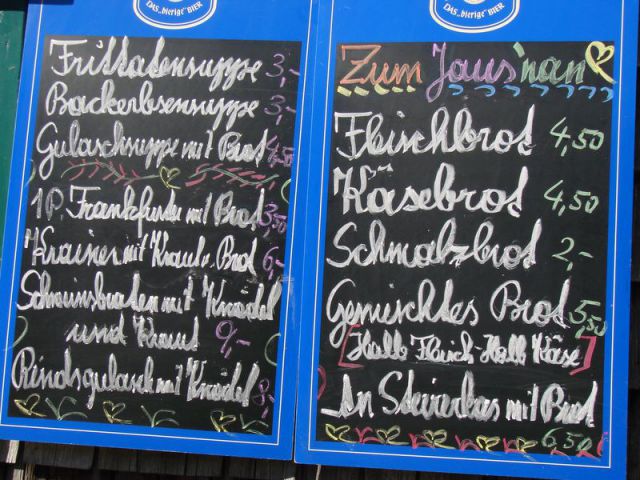 DAS „bierige" BIER
Frittatensuppe 3,-
Backerbsensuppe 3,-
Gulaschsuppe mit Brot 4,50
1 P. Frankfurter mit Brot 3,50
Krainer mit Kraut u. Brot 6,-
Schweinsbraten mit Knödel
und Kraut 9,-
Rindsgulasch mit Knödel 8,-
DAS „bierige" BIER
Zum Jaus'nan
Fleischbrot 4,50
Käsebrot 4,50
Schmalzbrot 2,-
Gemischtes Brot 5,50
[Halb Fleisch-Halb Käse]
An Steirerkas mit Brot
6,50